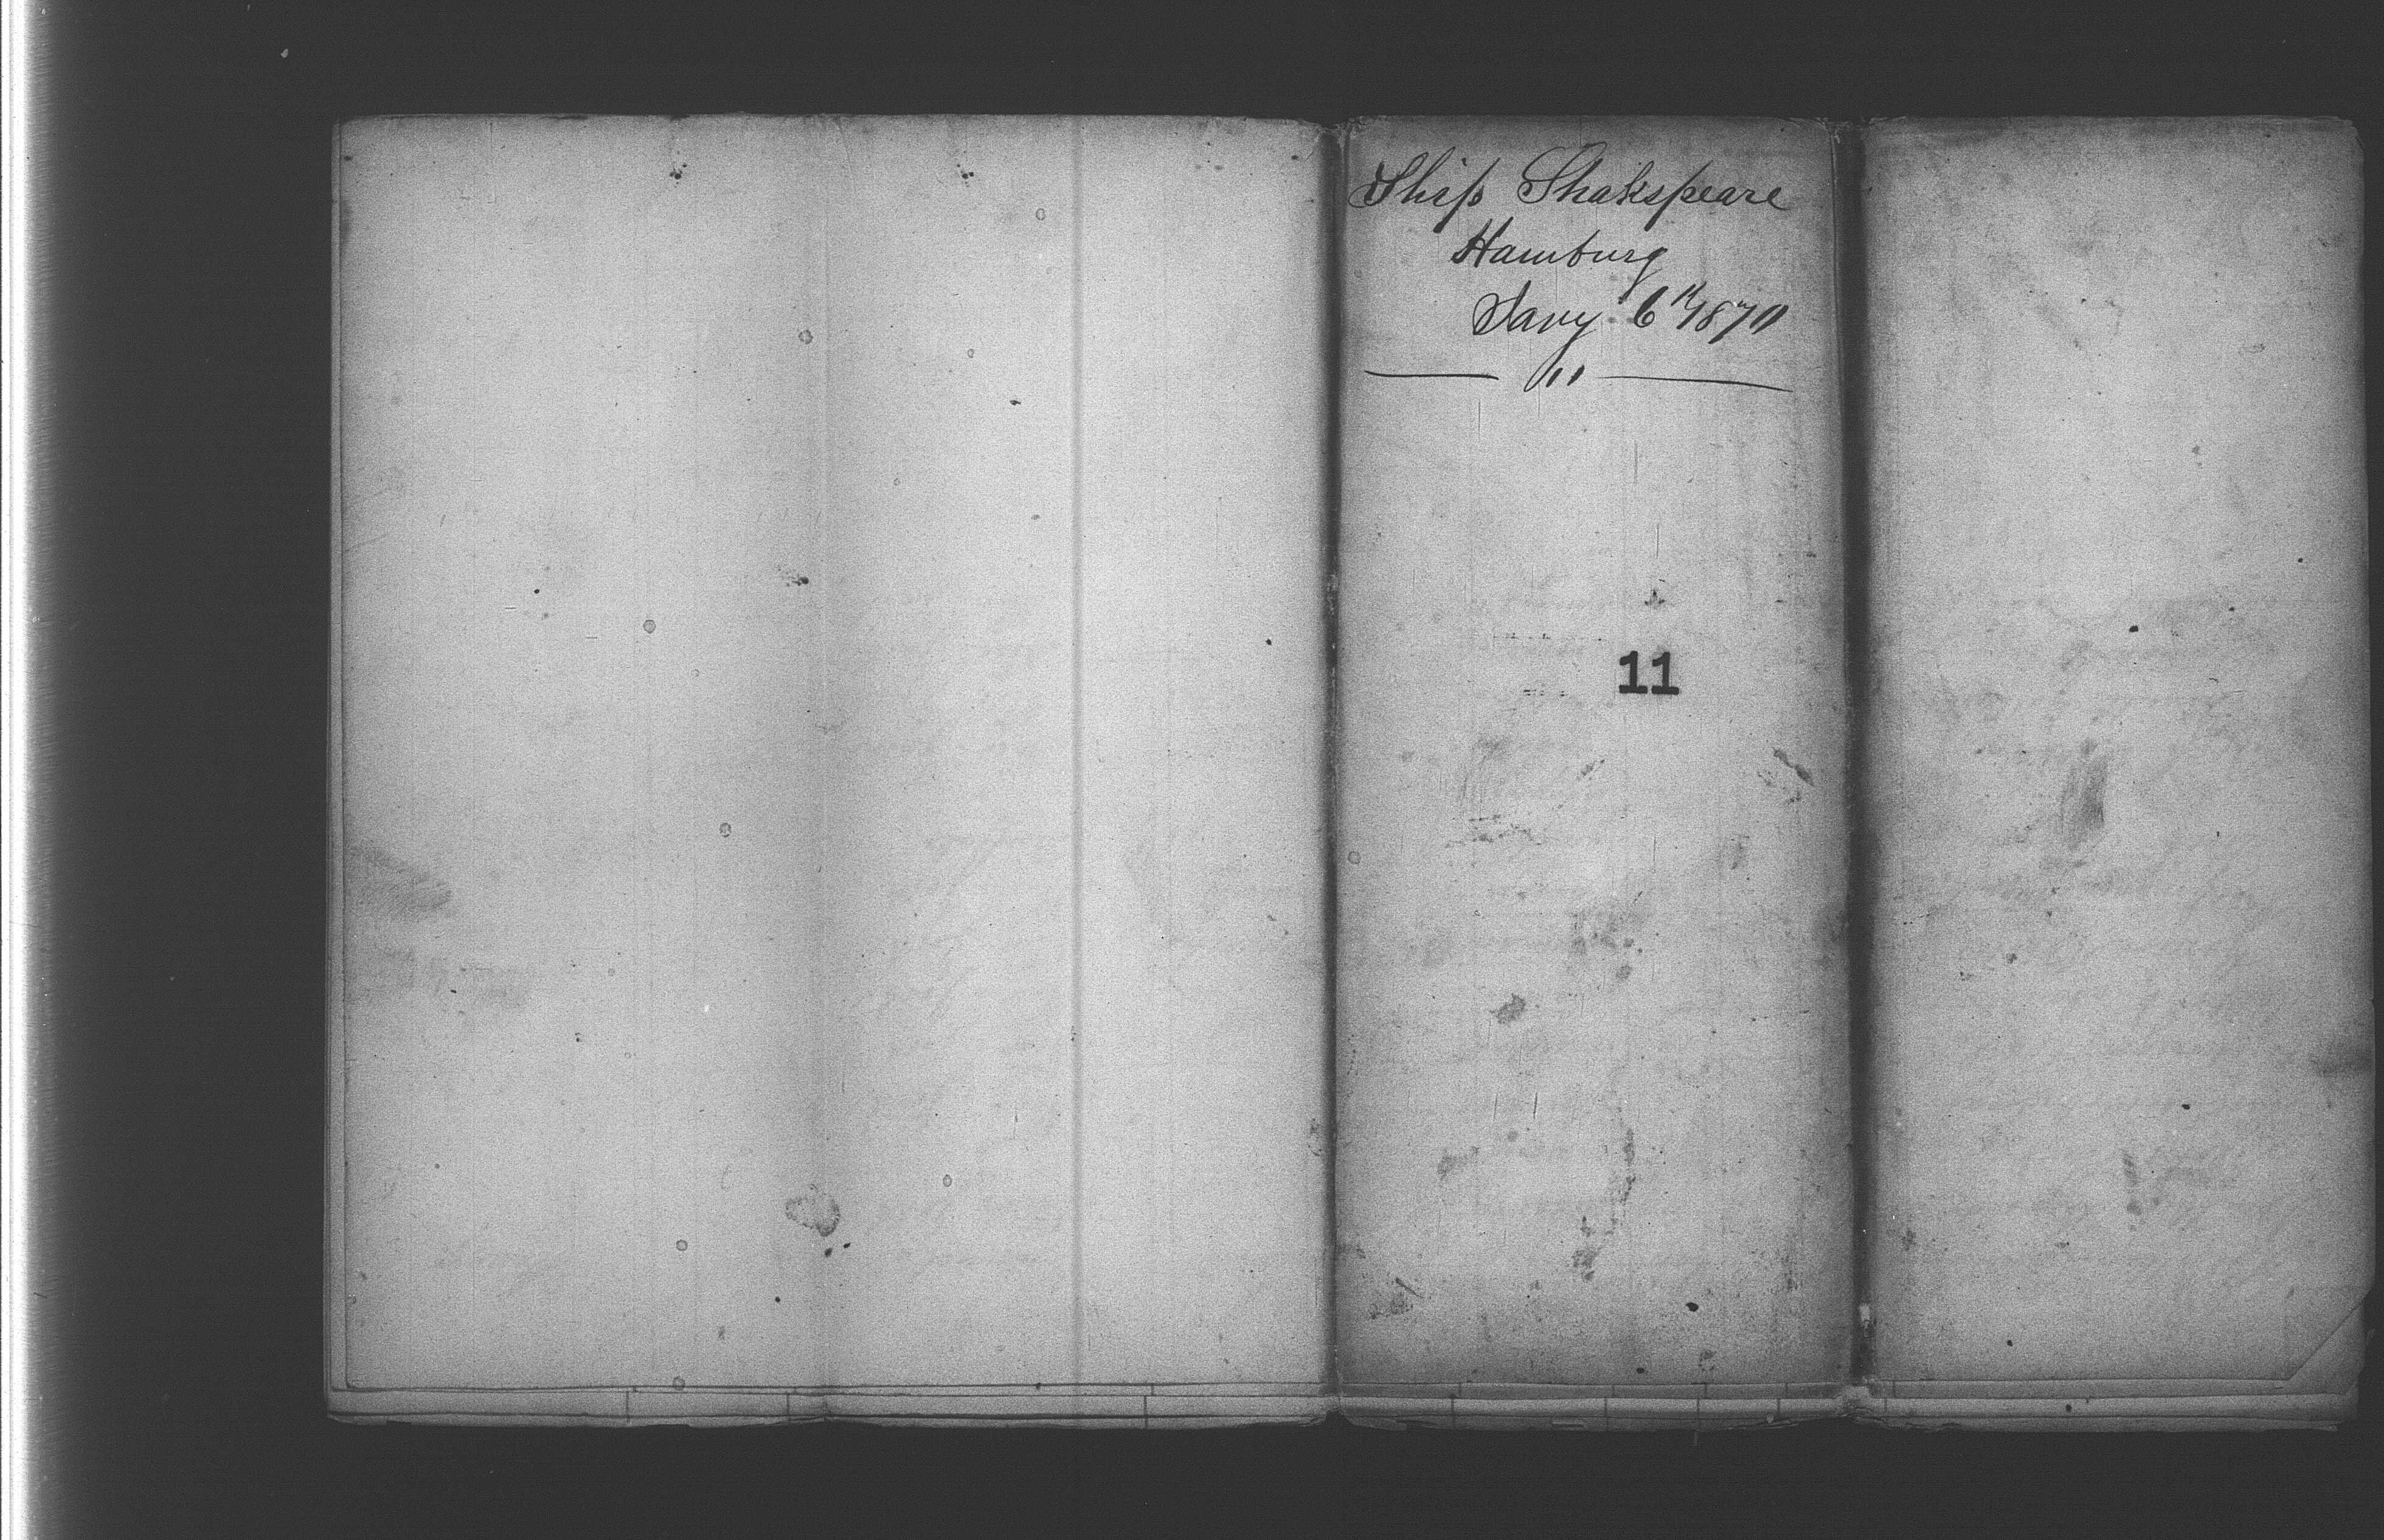 Ship Shakspeare
Hamburg
Jany 6th 1870
11
11